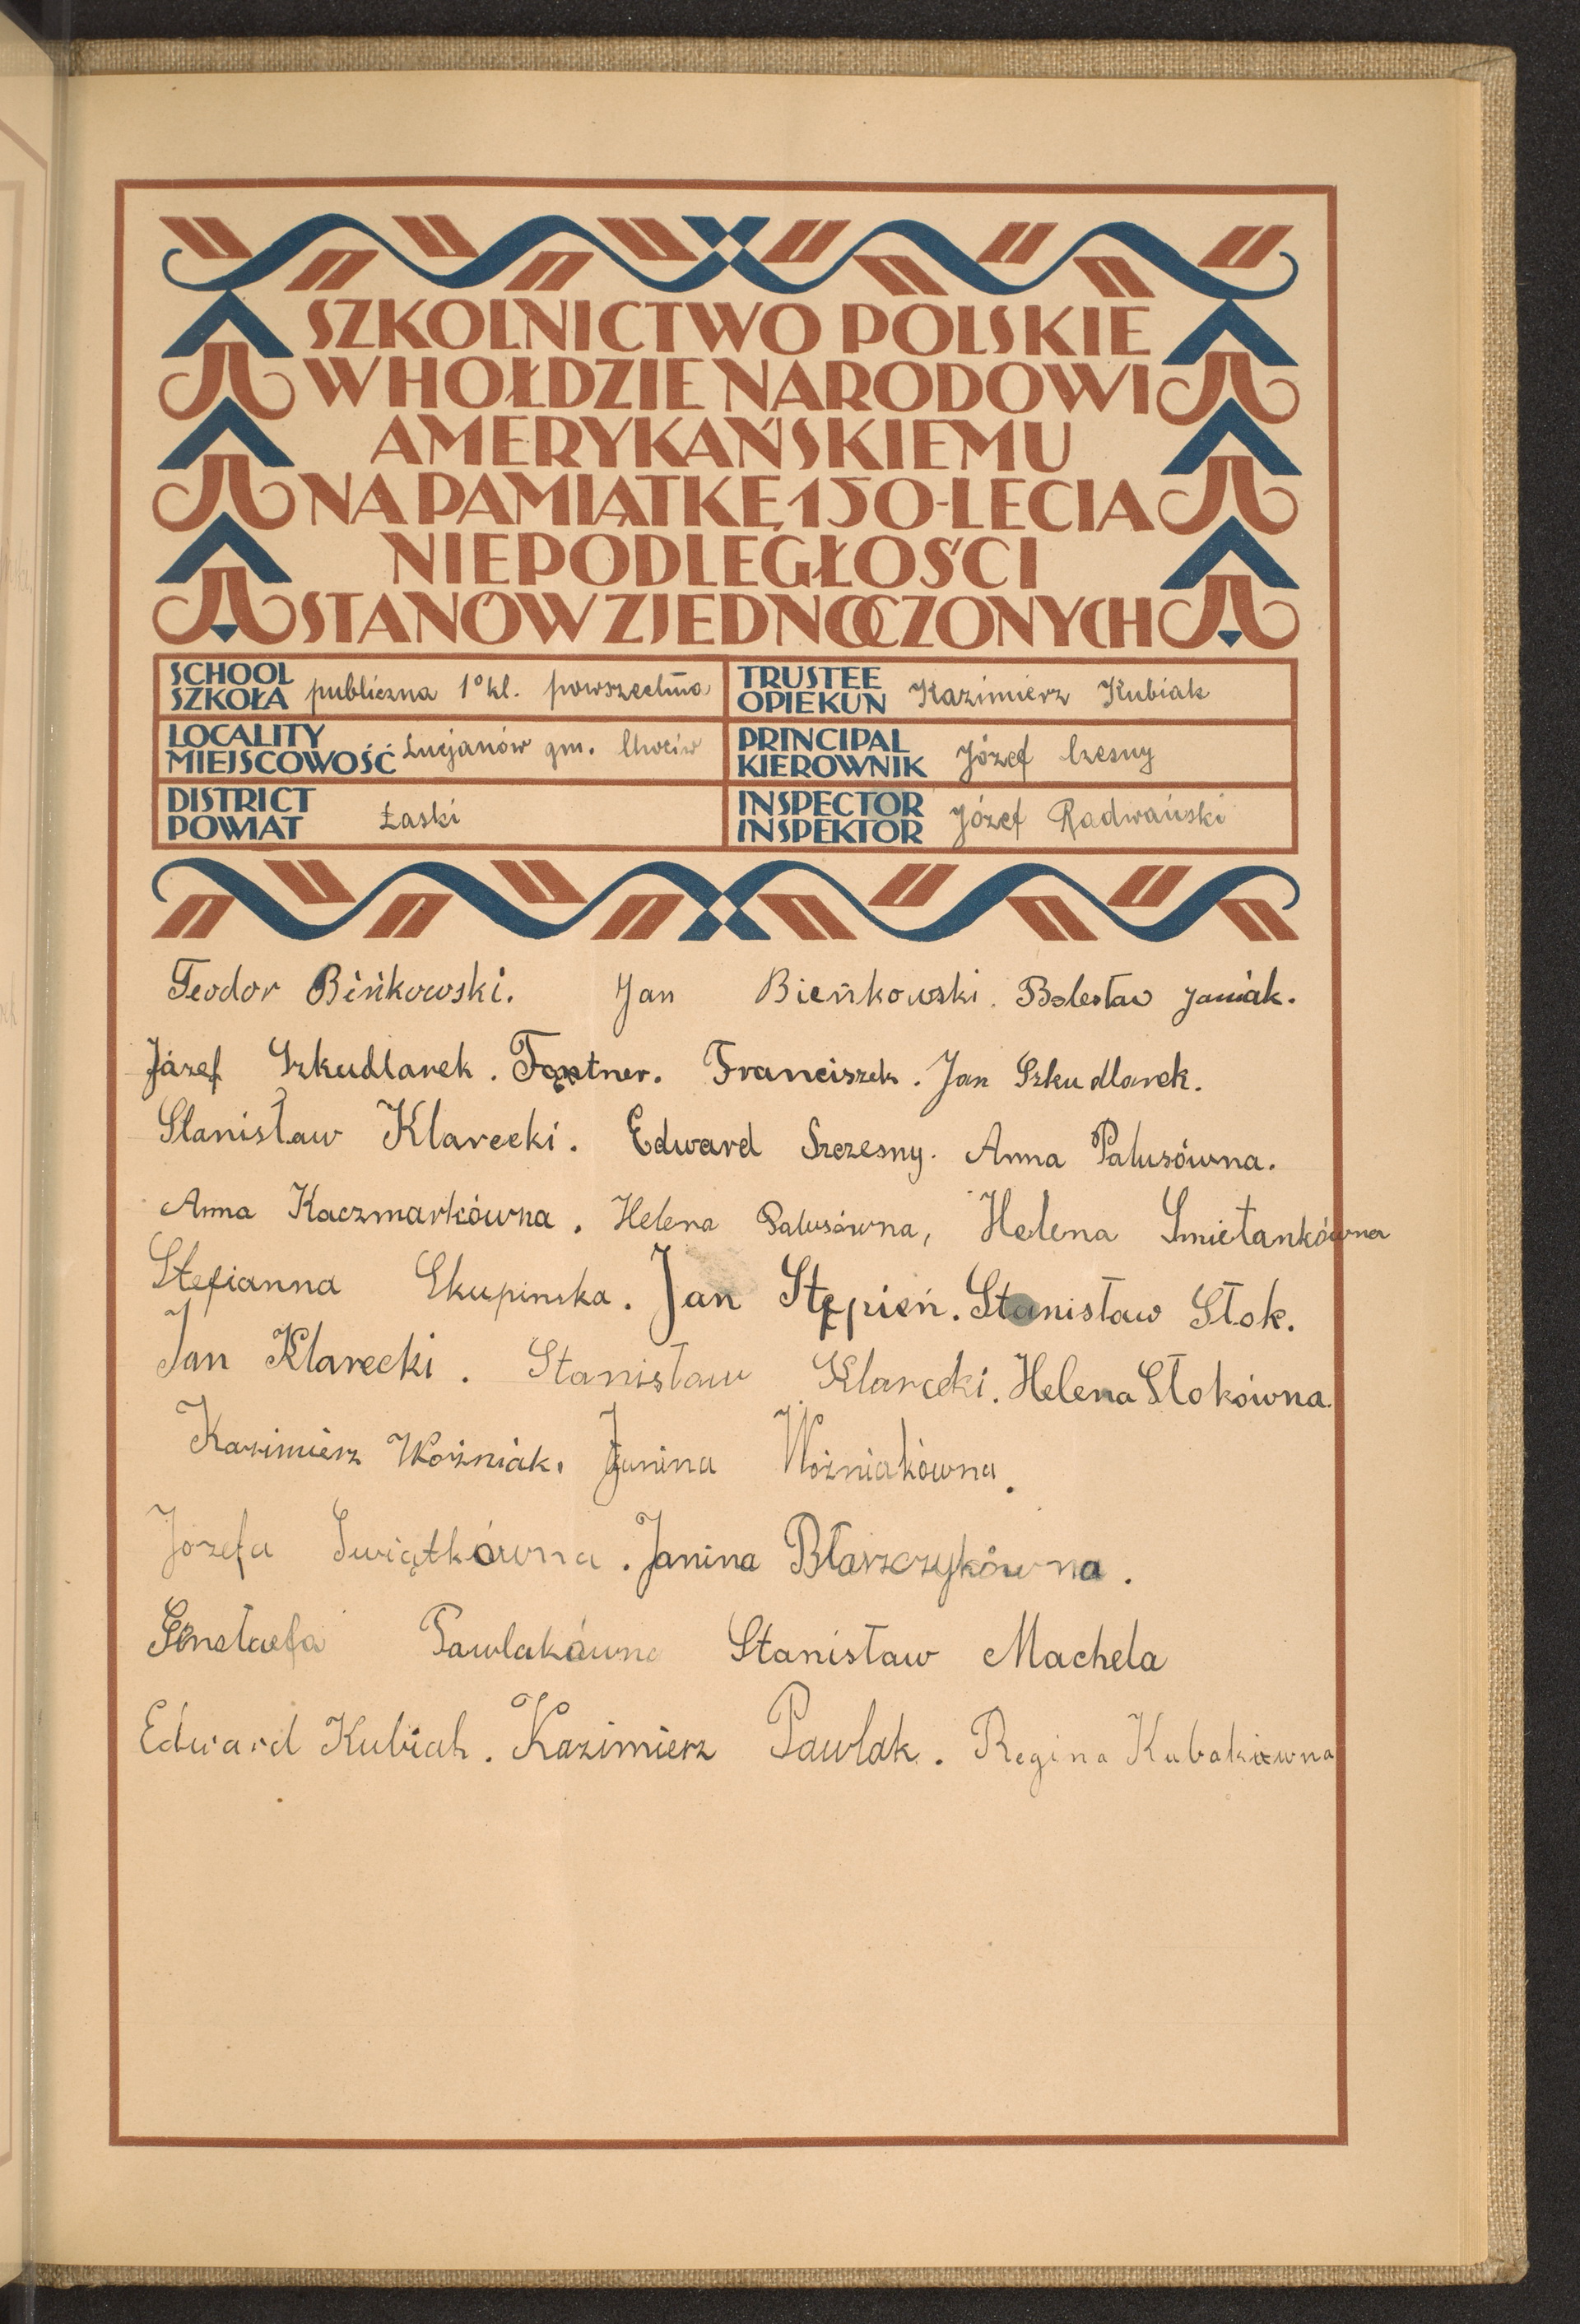 SZKOLNICTWO POLSKIE
W HOŁDZIE NARODOWI
AMERYKAŃSKIEMU
NA PAMIĄTKĘ 150-LECIA
NIEPODLEGŁOŚCI
STANÓW ZJEDNOCZONYCH
SCHOOL
SZKOŁA publiczna 1º kl. powszechna
TRUSTEE
OPIEKUN Kazimierz Kubiak
LOCALITY
MIEJSCOWOŚĆ Lucjanów gm.
PRINCIPAL
KIEROWNIK Józef
DISTRICT
POWIAT Łaski
INSPECTOR
INSPEKTOR Józef Radwański
Teodor Bińkowski. Jan Bieńkowski. Bolesław Janiak.
Józef Szkudlarek. Franciszek. Jan Szkudlarek.
Stanisław Klarecki. Edward Szczesny. Anna Palusówna.
Anna Kaczmarkówna. Helena Palusówna, Helena Smietankówna
Stefianna Skupinska. Jan Stępień. Stanisław Stok.
Jan Klarecki. Stanisław Klarecki. Helena Stokówna.
Kazimierz Woźniak. Janina Woźniakówna.
Józefa Swiątkówna. Janina Błaszczykówna.
Pawlakówna Stanisław Machela
Edward Kubiak. Kazimierz Pawlak. Regina Kubakówna